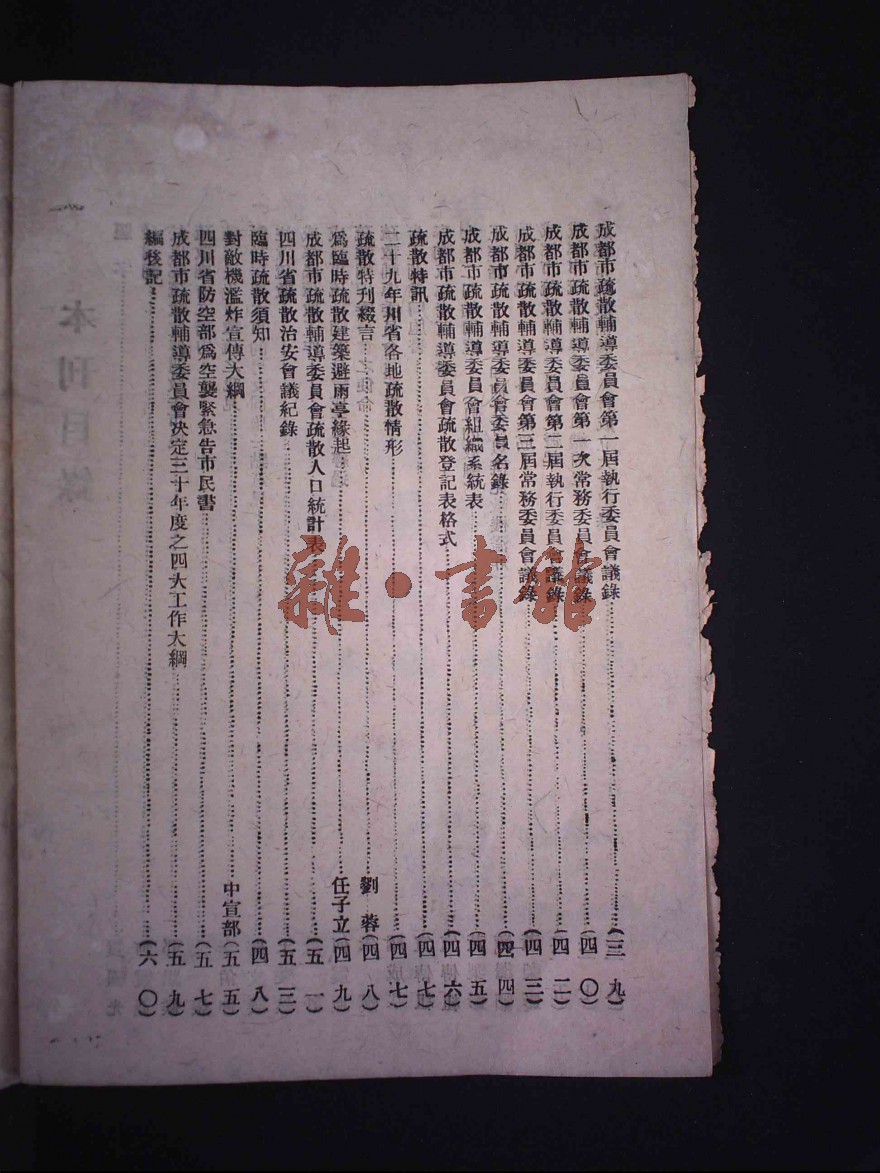 成都市疏散輔導委員會第一屆執行委員會議錄(三九)
成都市疏散輔導委員會第一次常務委員會議錄(四〇)
成都市疏散輔導委員會第二屆執行委員會議錄(四二)
成都市疏散輔導委員會第三屆常務委員會議錄(四三)
成都市疏散輔導委員會委員名錄(四四)
成都市疏散輔導委員會組織系統表(四五)
成都市疏散輔導委員會疏散登記表格式(四六)
疏散特訊(四七)
二十九年川省各地疏散情形(四七)
疏散特刊綴言 劉蓉(四八)
爲臨時疏散建築避雨亭緣起 任子立(四九)
成都市疏散輔導委員會疏散人口統計表(五一)
四川省疏散治安會議紀錄(五三)
臨時疏散須知(四八)
對敵機濫炸宣傳大綱 中宣部(五五)
四川省防空部爲空襲緊急告市民書(五七)
成都市疏散輔導委員會決定三十年度之四大工作大綱(五九)
編後記(六〇)
雜·書館
本刊目錄